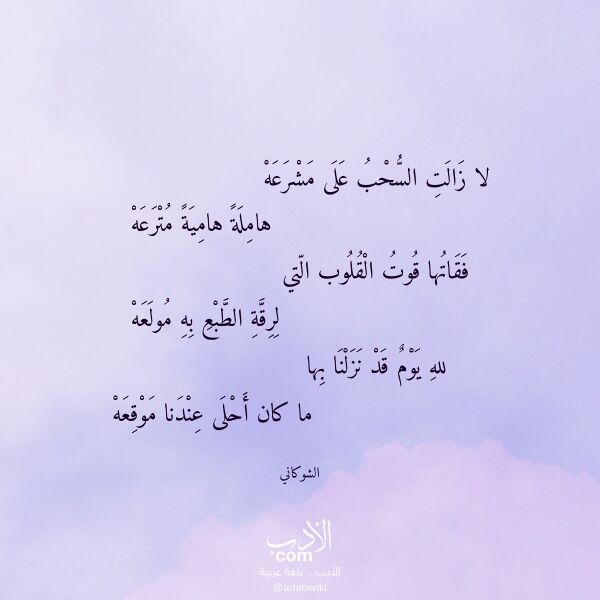 لا زَالَتِ السُّحْبُ عَلَى مَشْرَعَهْ
هامِلَةً هامِيَةً مُتْرَعَهْ
فَقَاتُها قُوتُ الْقُلُوب الّتي
لِرِقَّةِ الطَّبْعِ بِهِ مُولَعَهْ
للهِ يَوْمٌ قَدْ نَزَلْنَا بِها
ما كان أَحْلَى عِنْدَنا مَوْقِعَهْ
الشوكاني
الأدب
com
الأدب .. بلغة عربية
@adabwiki